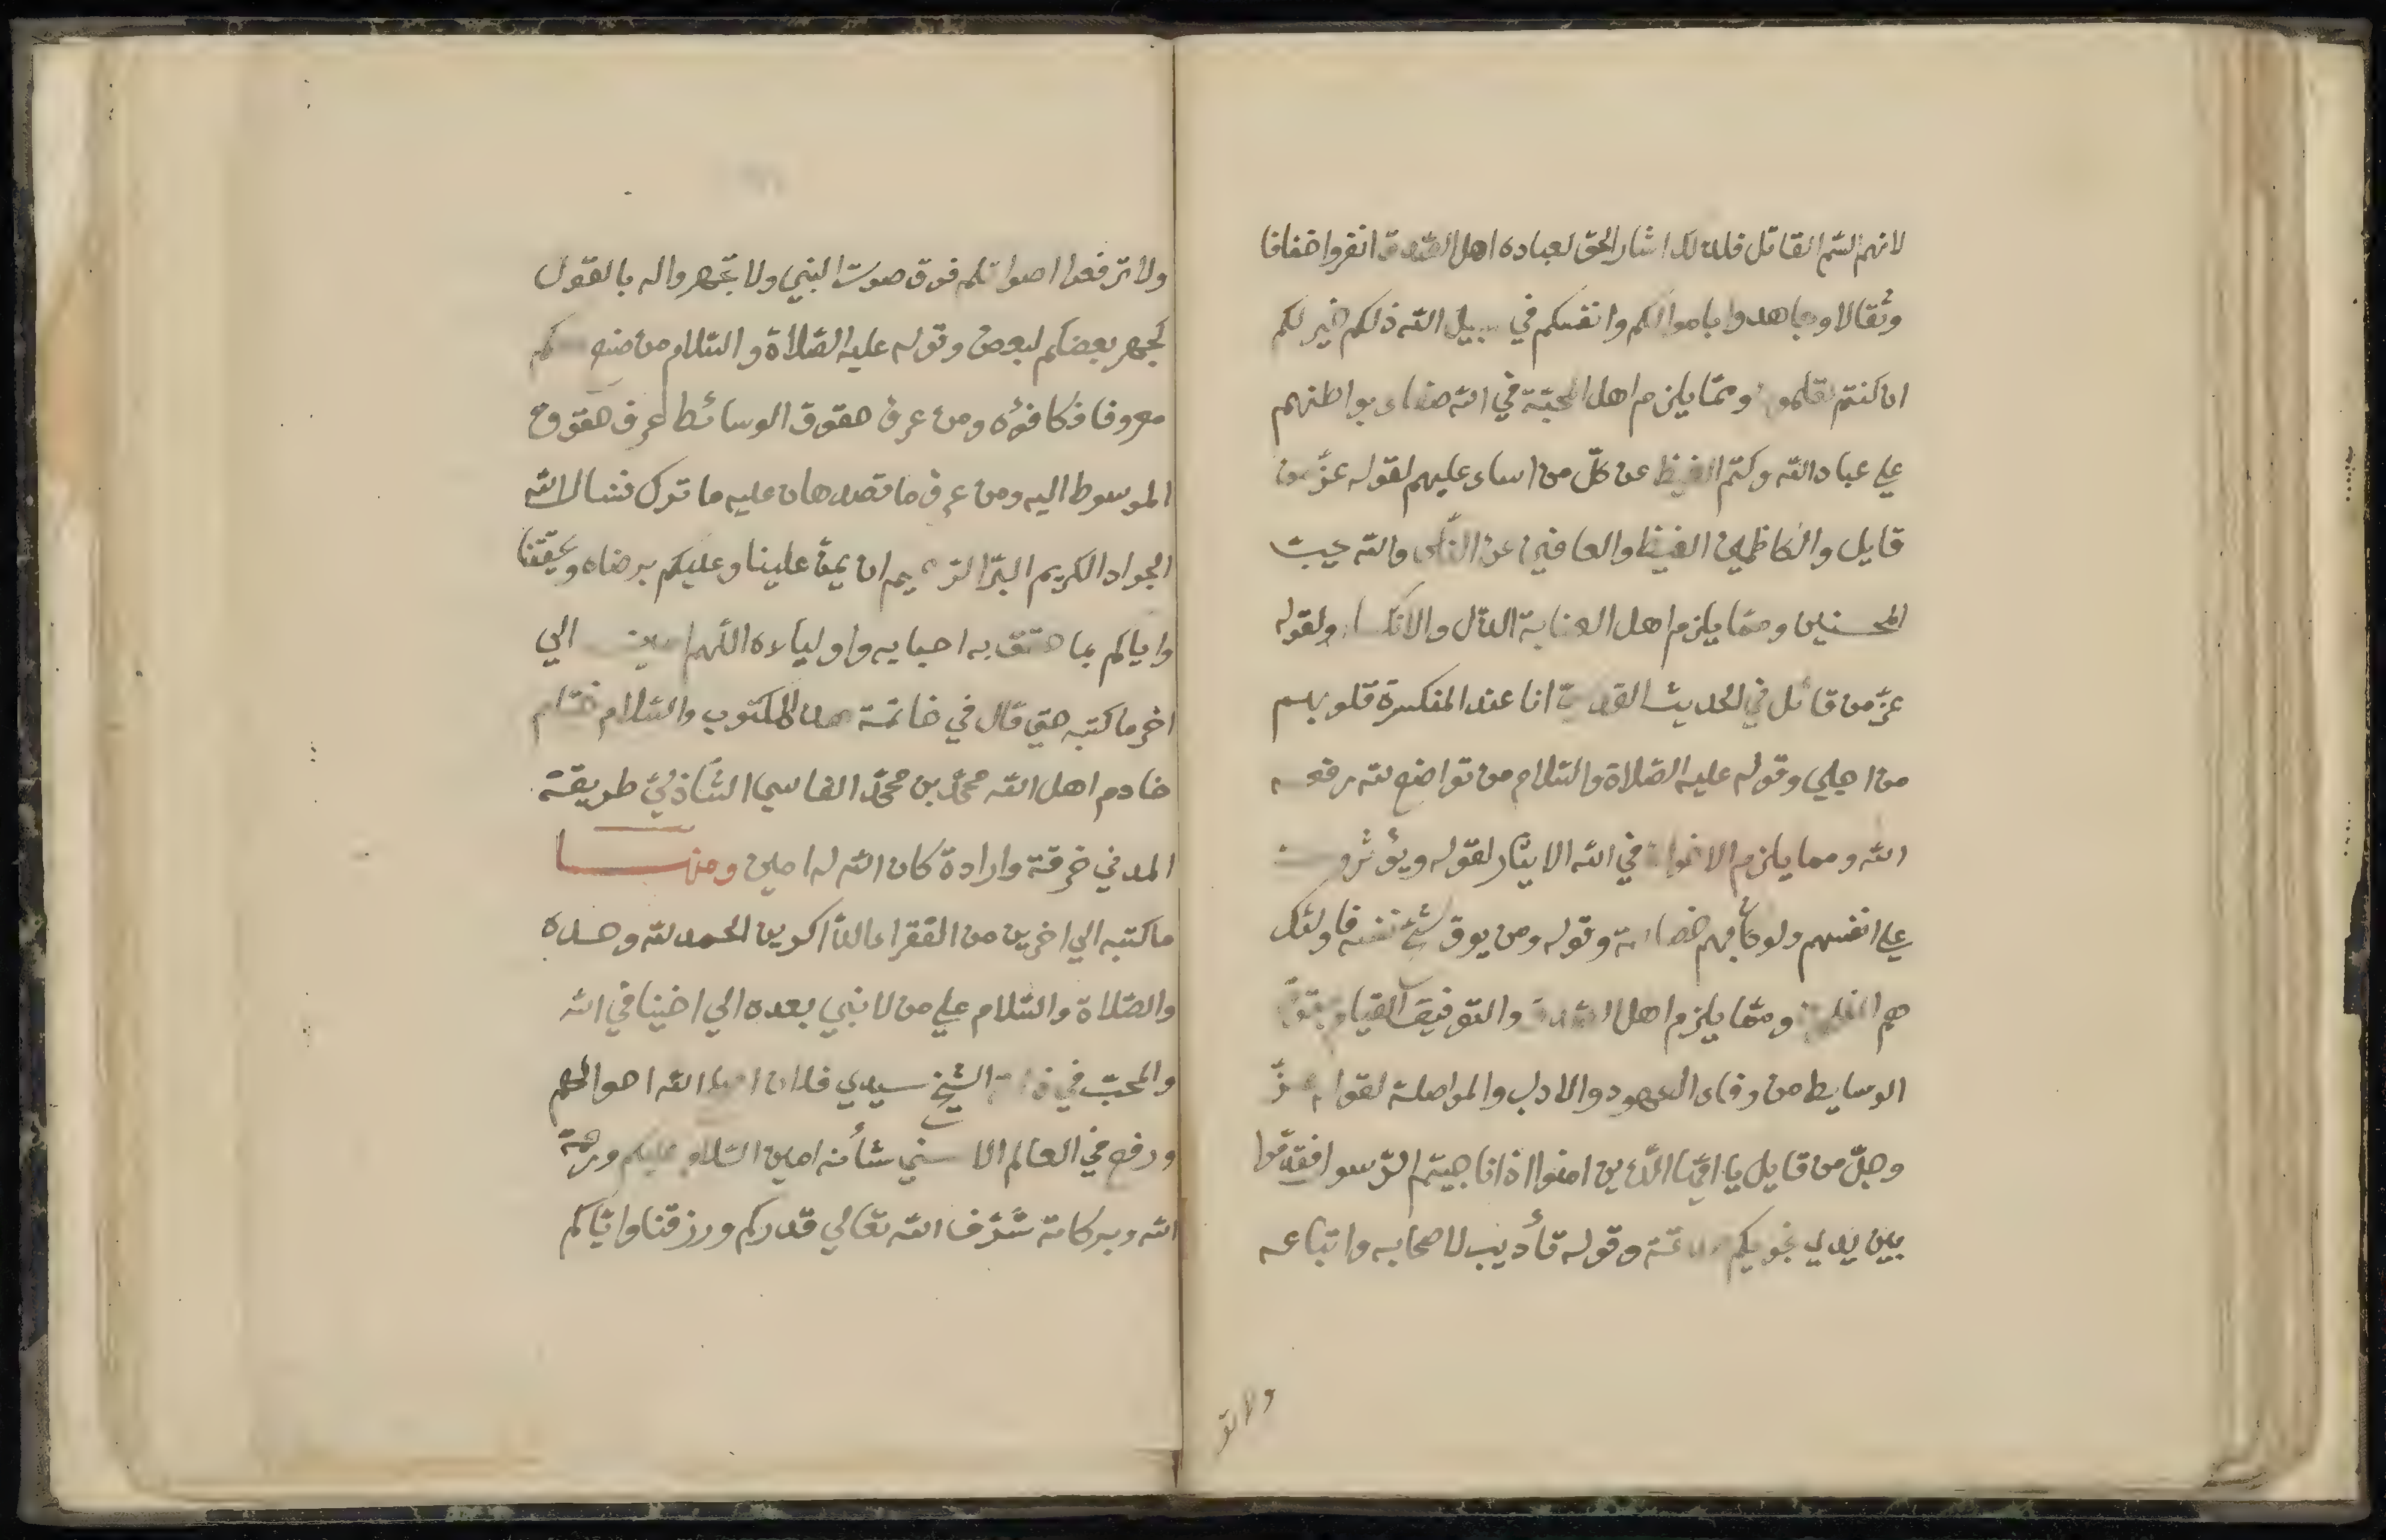 لانهم السّم القاتل فلذلك اشار الحق لعباده اهل الصّدق انفروا خفافا
وثقالا وجاهدوا باموالكم وانفسكم في سبيل الله ذلكم خير لكم
ان كنتم تعلمون وممّا يلزم اهل المحبّة في الله صفاء بواطنهم
علي عباد الله وكتم الغيظ عن كلّ من اساء عليهم لقوله عزّ من
قايل والكاظمين الغيظ والعافين عن النّاس والله يحبّ
المحسنين وممّا يلزم اهل العناية الذّل والانكسار ولقوله
عزّ من قائل في الحديث القدسيّ انا عند المنكسرة قلوبهم
من اجلي وقوله عليه الصّلاة والسّلام من تواضع لله رفعه
الله ومما يلزم الاخوان في الله الايثار لقوله ويؤثرون
علي انفسهم ولو كان بهم خصاصة وقوله ومن يوق شحّ نفسه فاولئك
هم المفلحون وممّا يلزم اهل والتّوفيق القيام بحقّ
الوسايط من وفاء العهود والادب والمواصلة لقوله عزّ
وجلّ من قايل يا ايّها الّذين امنوا اذا ناجيتم الرّسول فقدّموا
بين يدي نجويكم صدقة وقوله تأديب لاصحابه واتباعه
ولا تر
ولا ترفعوا اصواتكم فوق صوت النبي ولا تجهروا له بالقول
كجهر بعضكم لبعض وقوله عليه الصّلاة والسّلام من صنع اليكم
معروفا فكافئوه ومن عرف حقوق الوسائط عرف حقوق
الموسوط اليه ومن عرف ما قصد هان عليه ما ترك فنسال الله
الجواد الكريم البرّ الرّحيم ان يمنّ علينا وعليكم برضاه ويحقّقنا
واياكم بما حقّق به احبايه واولياءه اللّهم امين الي
اخر ما كتبه حتي قال في خاتمة هذا المكتوب والسّلام ختام
خادم اهل الله محمّد بن محمّد الفاسي الشّاذليّ طريقة
المدني خرقة وارادة كان الله له امين ومنها
ما كتبه الي اخرين من الفقراء الذّاكرين الحمد لله وحده
والصّلاة والسّلام علي من لا نبي بعده الي اخينا في الله
والمحبّ في ذات الشيخ سيدي فلان اصلح الله احوالكم
ورفع في العالم الاسني شأنه امين السّلام عليكم ورحمة
الله وبركاته شرّف الله تعالي قدركم ورزقنا وايّاكم